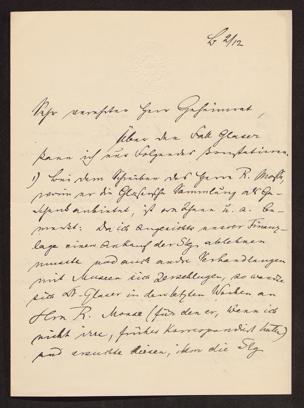 B 2/12
Sehr verehrter Herr Geheimrat,
Über den Fall Glaser
kann ich nur Folgendes konstatieren.
1) bei dem Schreiben des Herrn R. Mosse,
worin er die Glasersche Sammlung als Ge-
schenk anbietet, ist von Ihnen u. a. be-
merkt: Da ich angesichts unserer Finanz-
lage einen Ankauf der Slg ablehnen
musste und auch andre Verhandlungen
mit Museen sich zerschlugen, so wandte
sich Dr. Glaser in den letzten Wochen an
Hrn R. Mosse (für den er, wenn ich
nicht irre, früher Korrespondent war)
und ersuchte diesen, ihm die Slg